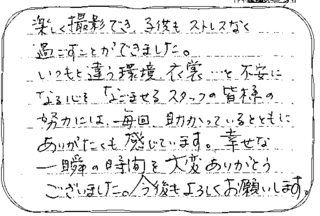 楽しく撮影でき、子供もストレスなく
過ごすことができました。
いつもと違う環境、衣裏…と不安に
なる心を、なごませるスタッフの皆様の
努力には、毎回、助かっているとともに
ありがたくも感じています。幸せな
一瞬の時間を大変ありがとう
ございました。今後もよろしくお願いします。